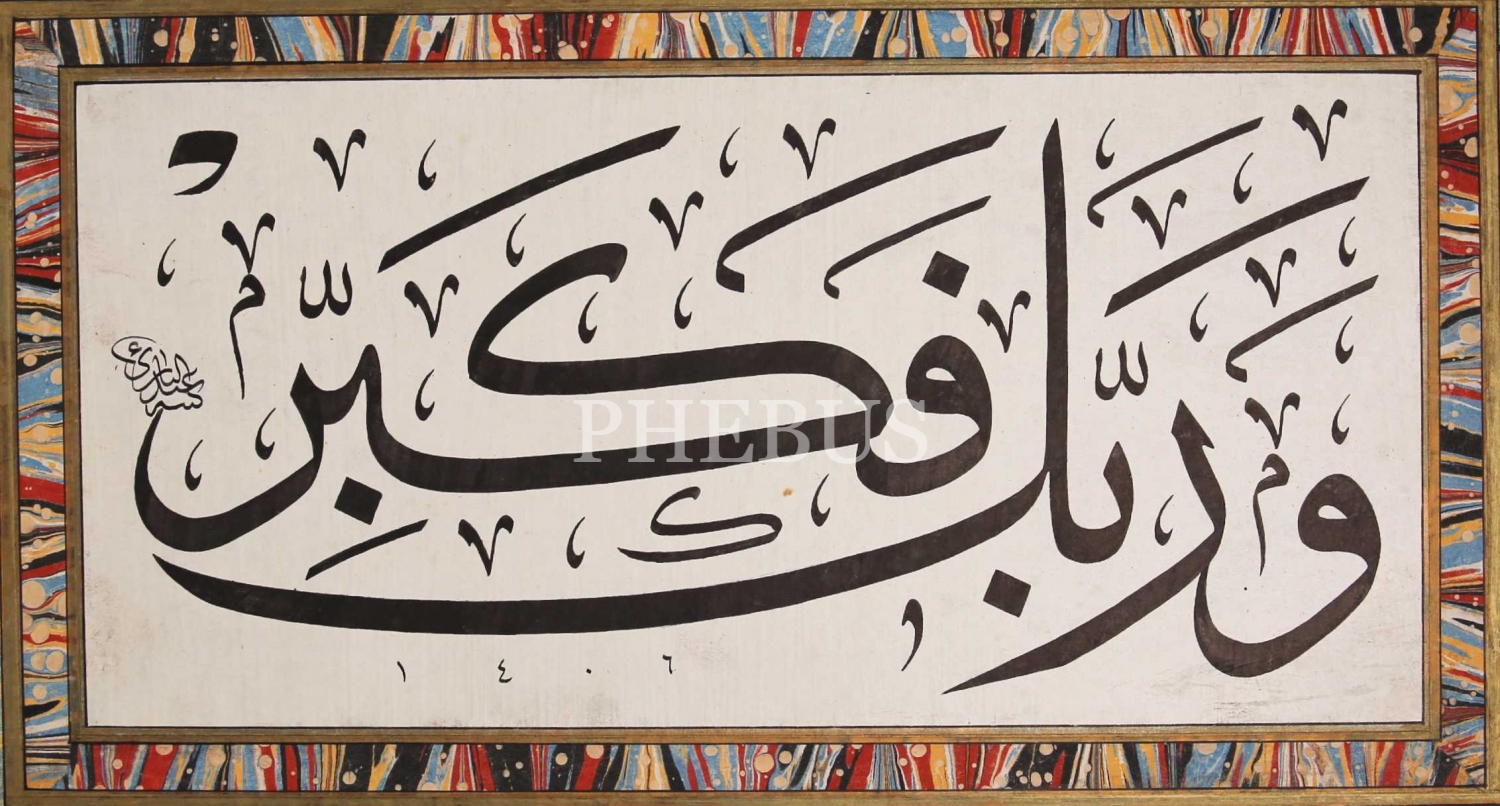 وَرَبَّكَ فَكَبِّرْ
١٤٠٦
PHEBUS